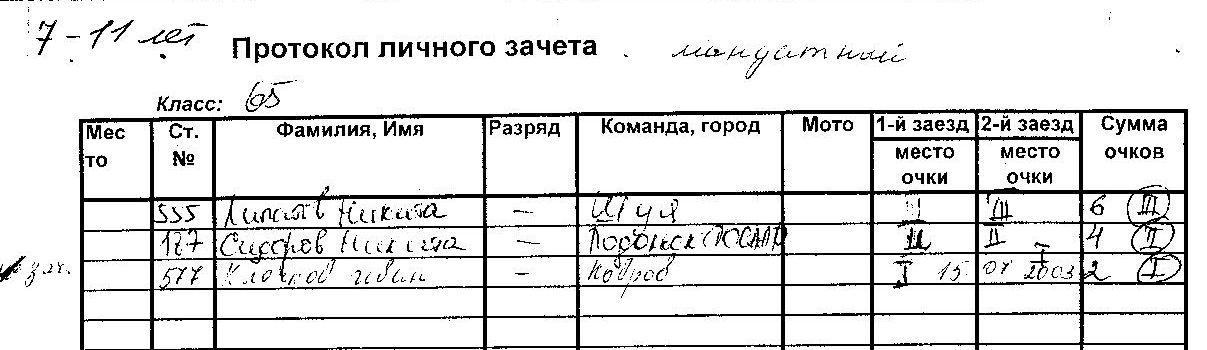 7-11 лет
Протокол личного зачета мандатный
Класс: 65
Место Ст. № Фамилия, Имя Разряд Команда, город Мото 1-й заезд место очки 2-й заезд место очки Сумма очков
555 Липатов Никита — Шуя III III 6 III
187 Сидоров Никита — Подольск II II 4 II
577 Клочков Иван — Ковров I 15 07 2003 I 2 I